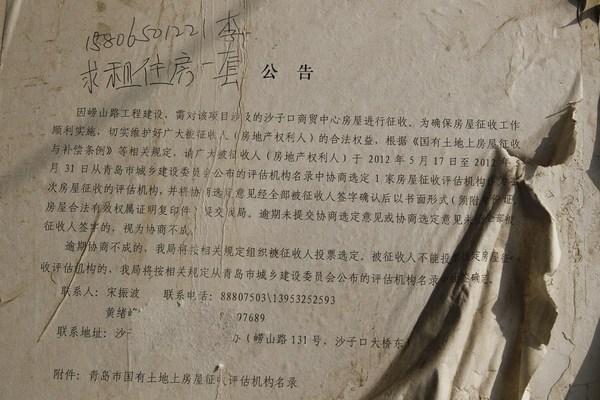 15806501221 李
求租住房一套
公告
因崂山路工程建设，需对该项目涉及的沙子口商贸中心房屋进行征收。为确保房屋征收工作
顺利实施，切实维护好广大被征收人（房地产权利人）的合法权益，根据《国有土地上房屋征收
与补偿条例》等相关规定，请广大被征收人（房地产权利人）于 2012 年 5 月 17 日至 2012
月 31 日从青岛市城乡建设委员会公布的评估机构名录中协商选定 1 家房屋征收评估机构
次房屋征收的评估机构，并将协商选定意见经全部被征收人签字确认后以书面形式（须附
房屋合法有效权属证明复印件 提交我局。逾期未提交协商选定意见或协商选定意见未 全部被
征收人签字的，视为协商不成。
逾期协商不成的，我局将按相关规定组织被征收人投票选定。被征收人不能投票选定房屋征
收评估机构的，我局将按相关规定从青岛市城乡建设委员会公布的评估机构名录中
联系人：宋振波 联系电话：88807503\13953252593
黄绪 97689
联系地址：沙子 办（崂山路 131 号，沙子口大桥东
附件：青岛市国有土地上房屋征收评估机构名录